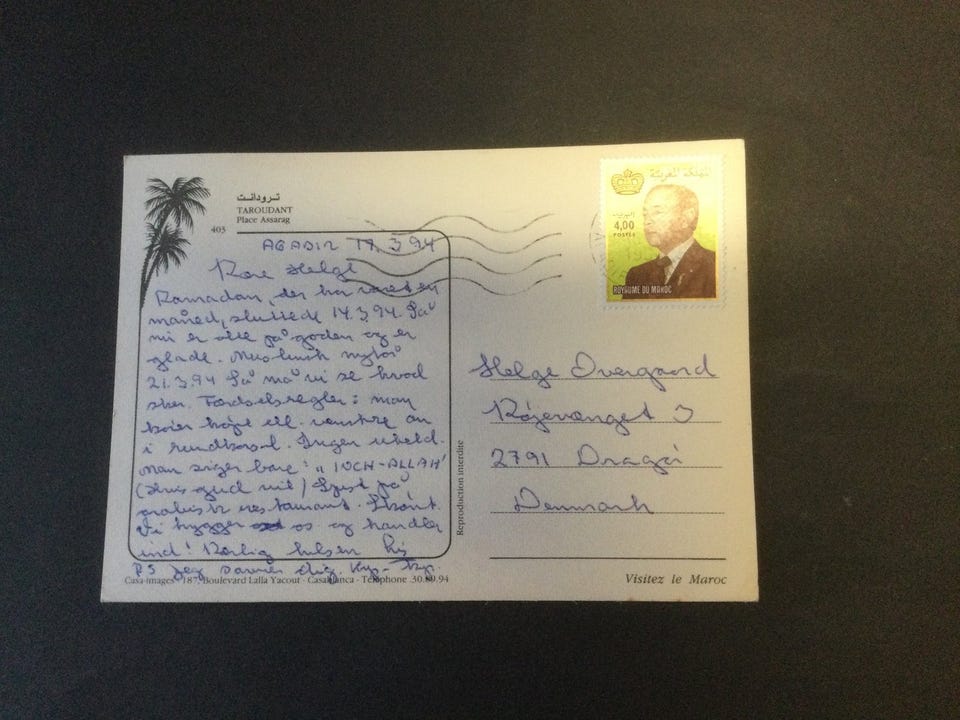 تـرودانـت
TAROUDANT
Place Assarag
403
AGADIR 17.3.94
Kære Helge
Ramadan, der har varet en
måned, sluttede 14.3.94. Så
nu er alle på gaden og er
glade. Muslimsk nytår
21.3.94 Så må vi se hvad
sker. Færdselsregler: man
kører højre ell. venstre om
i rundkørsel. Ingen uheld.
Man siger bare: "INCH-ALLAH"
(hvis gud vil) Spist på
arabisk restaurant. Skønt.
Vi hygger os og handler
ind! Kærlig hilsen
PS Jeg savner dig.
Casa-images - 187, Boulevard Lalla Yacout - Casablanca - Téléphone 30.89.94
Reproduction interdite
المملكة المغربية
البريد
4,00
POSTES
ROYAUME DU MAROC
Helge Overgaard
Røjevænget 3
2791 Dragør
Denmark
Visitez le Maroc